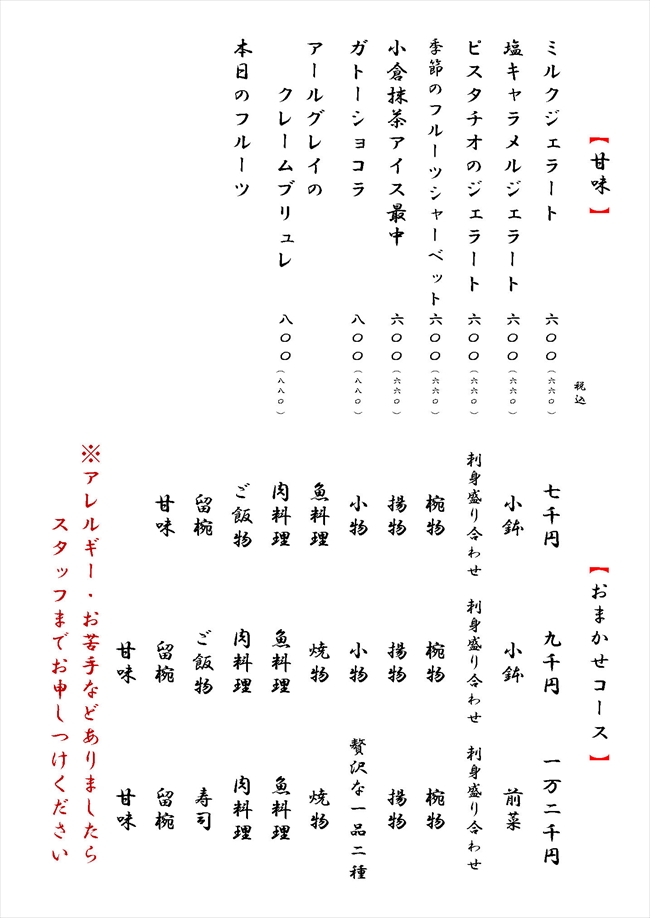 【甘味】
税込
ミルクジェラート 六〇〇（六六〇）
塩キャラメルジェラート 六〇〇（六六〇）
ピスタチオのジェラート 六〇〇（六六〇）
季節のフルーツシャーベット 六〇〇（六六〇）
小倉抹茶アイス最中 六〇〇（六六〇）
ガトーショコラ 八〇〇（八八〇）
アールグレイの
クレームブリュレ 八〇〇（八八〇）
本日のフルーツ
【おまかせコース】
七千円
小鉢
刺身盛り合わせ
椀物
揚物
小物
魚料理
肉料理
ご飯物
留椀
甘味
九千円
小鉢
刺身盛り合わせ
椀物
揚物
小物
焼物
魚料理
肉料理
ご飯物
留椀
甘味
一万二千円
前菜
刺身盛り合わせ
椀物
揚物
贅沢な一品二種
焼物
魚料理
肉料理
寿司
留椀
甘味
※アレルギー・お苦手などありましたら
スタッフまでお申しつけください